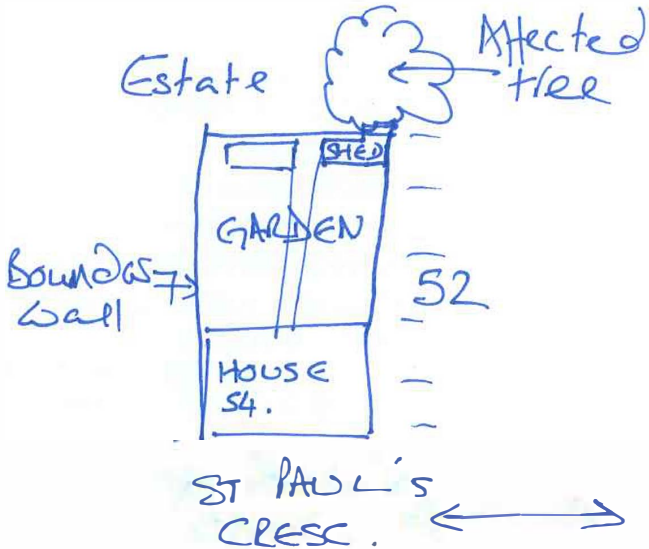 Affected
tree
Estate
SHED
GARDEN
Boundary
wall
52
HOUSE
54.
ST PAUL'S
CRESC.